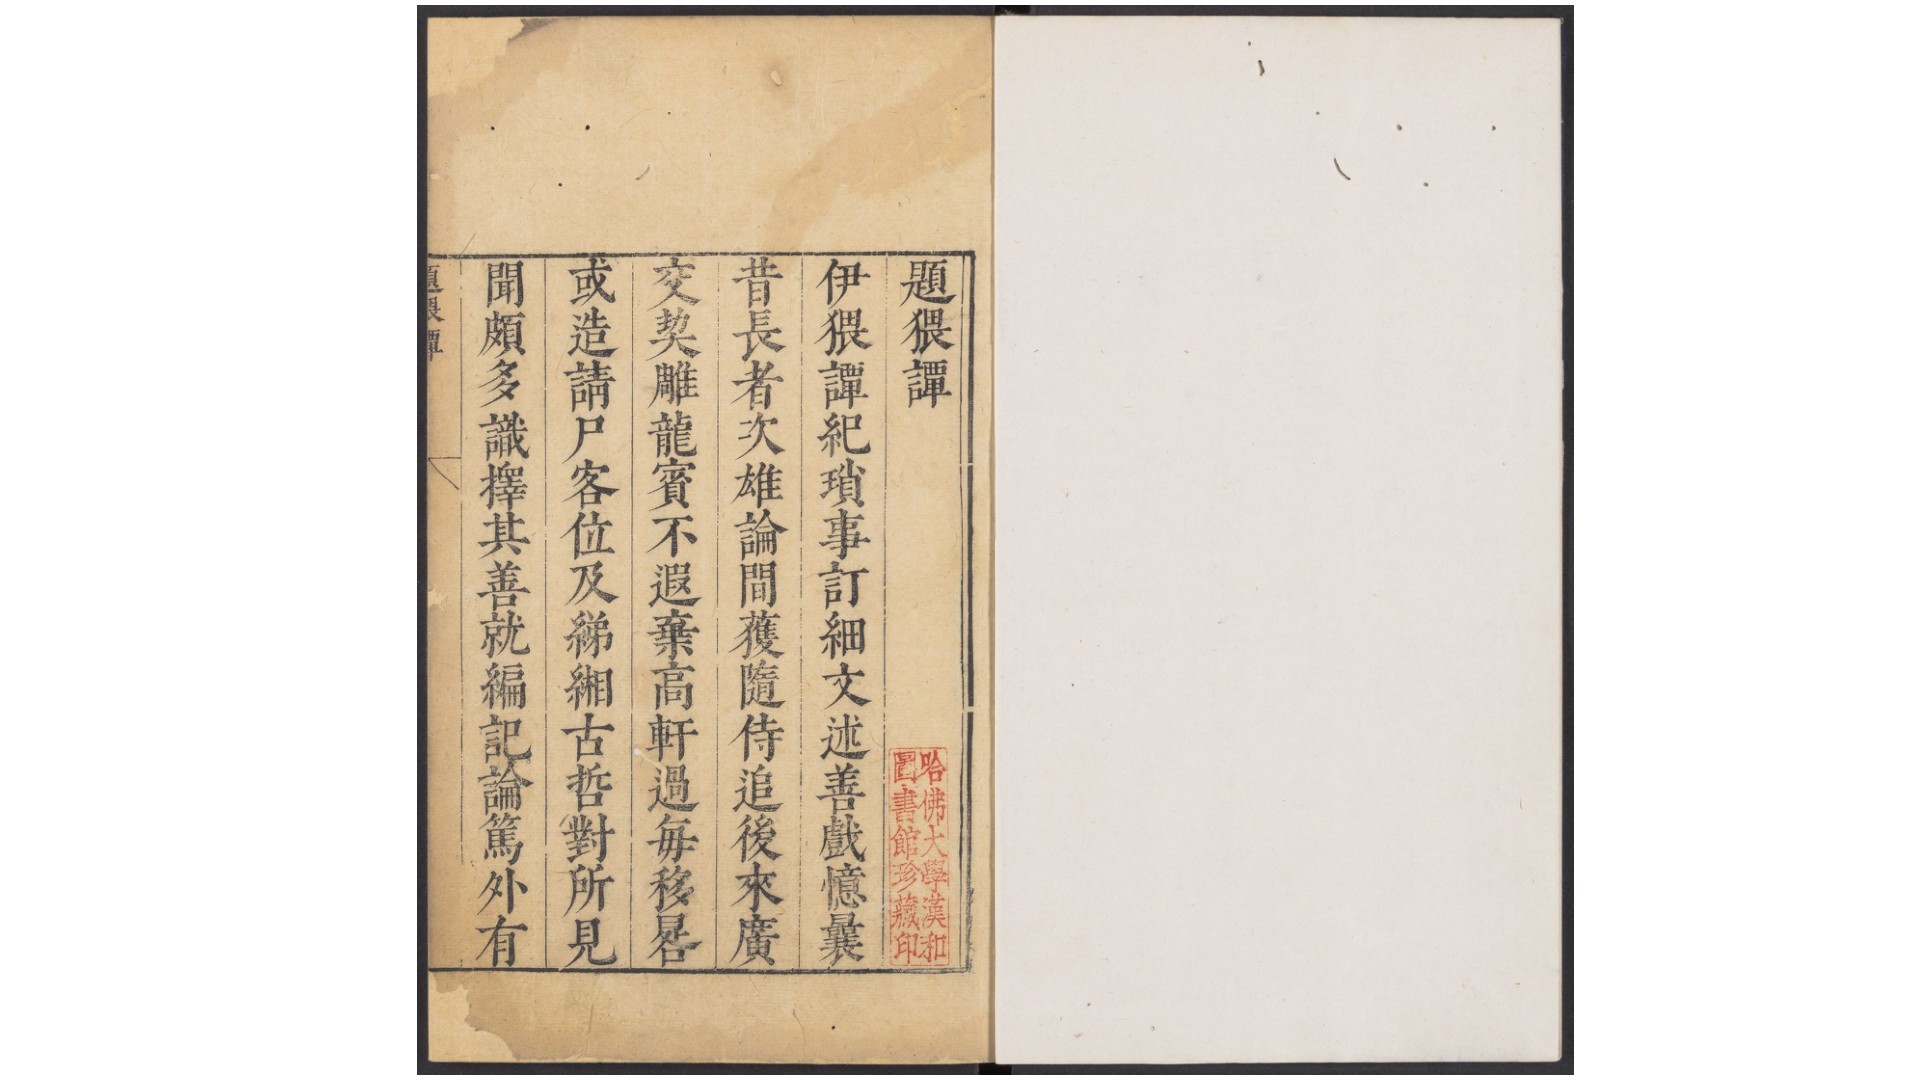 題猥譚
伊猥譚紀瑣事訂細文述善戲憶曩
昔長者次雄論間獲隨侍追後來廣
交契雕龍賓不遐棄高軒過每移晷
或造請尸客位及綈緗古哲對所見
聞頗多識擇其善就編記論篤外有
題猥譚
哈佛大學漢和
圖書館珍藏印